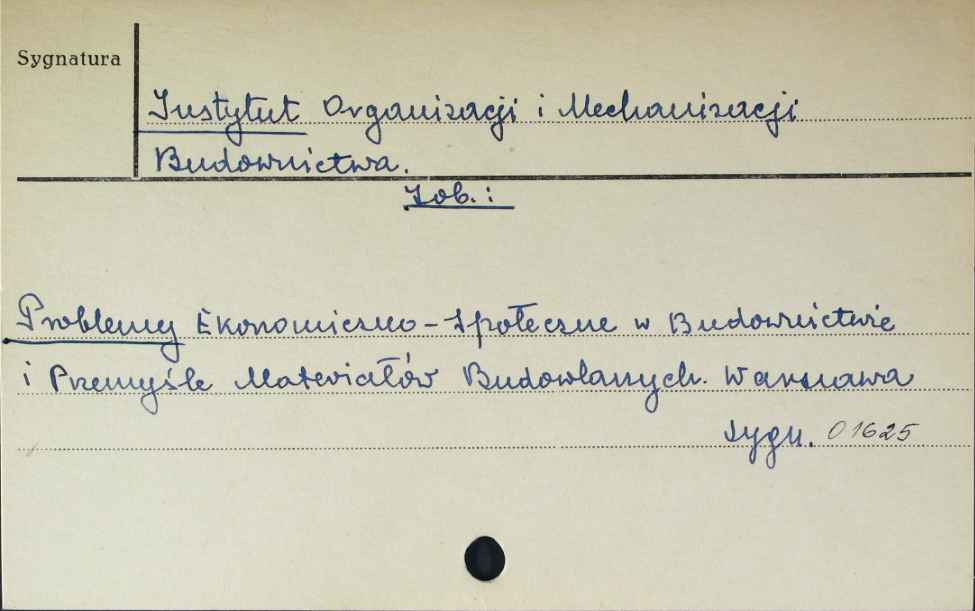 Sygnatura
Instytut Organizacji i Mechanizacji
Budownictwa.
Zob.:
Problemy Ekonomiczno-Społeczne w Budownictwie
i Przemyśle Materiałów Budowlanych. Warszawa
sygn. 01625